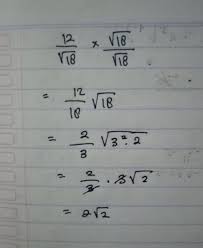 12/√18 × √18/√18
= 12/18 √18
= 2/3 √3²·2
= 2/3 · 3√2
= 2√2